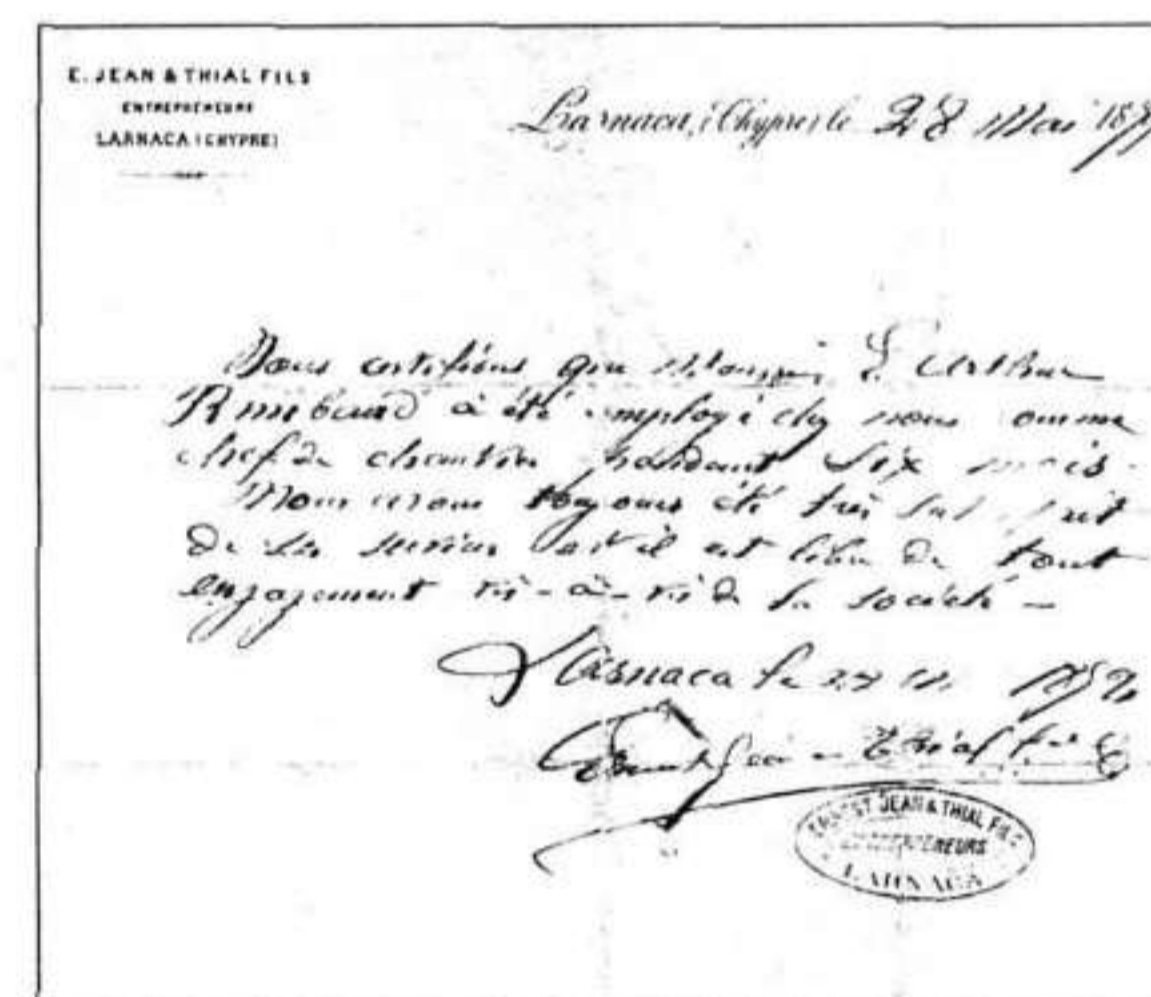 E. JEAN & THIAL FILS
ENTREPRENEURS
LARNACA (CHYPRE)
Larnaca, (Chypre) le 28 Mai 187
Nous certifions que Monsieur Arthur
Rimbaud a été employé chez nous comme
chef de chantier pendant six mois.
Nous avons toujours été très satisfait
de ses services et il est libre de tout
engagement vis-à-vis de la société –
Larnaca le
Ernest Jean & Thial fils
ERNEST JEAN & THIAL FILS
ENTREPRENEURS
LARNACA